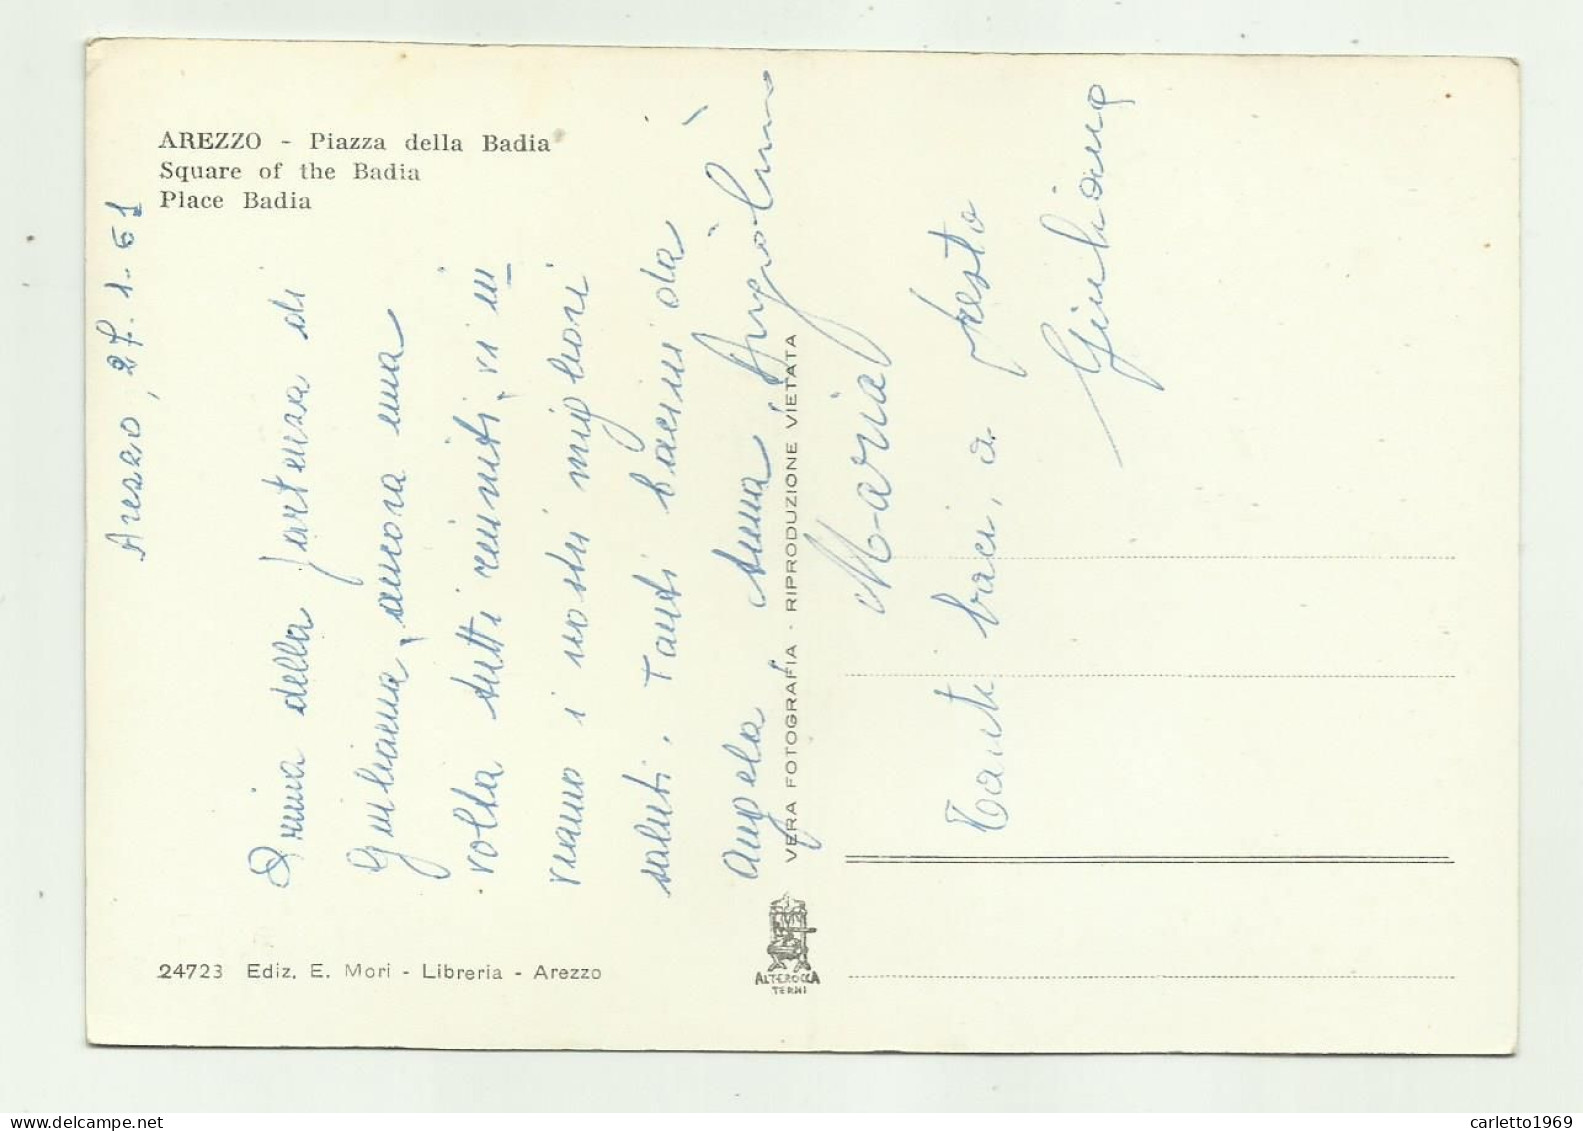 AREZZO - Piazza della Badia
Square of the Badia
Place Badia
Arezzo, 27.1.61
Prima della partenza di
Giuliana, ancora una
volta tutti riuniti, vi in
viamo i nostri migliori
saluti. Tanti bacini da
Angela Anna Angiolino
Maria
Tanti baci, a presto
Giuliana
VERA FOTOGRAFIA · RIPRODUZIONE VIETATA
24723 Ediz. E. Mori - Libreria - Arezzo
ALTEROCCA
TERNI
carletto1969